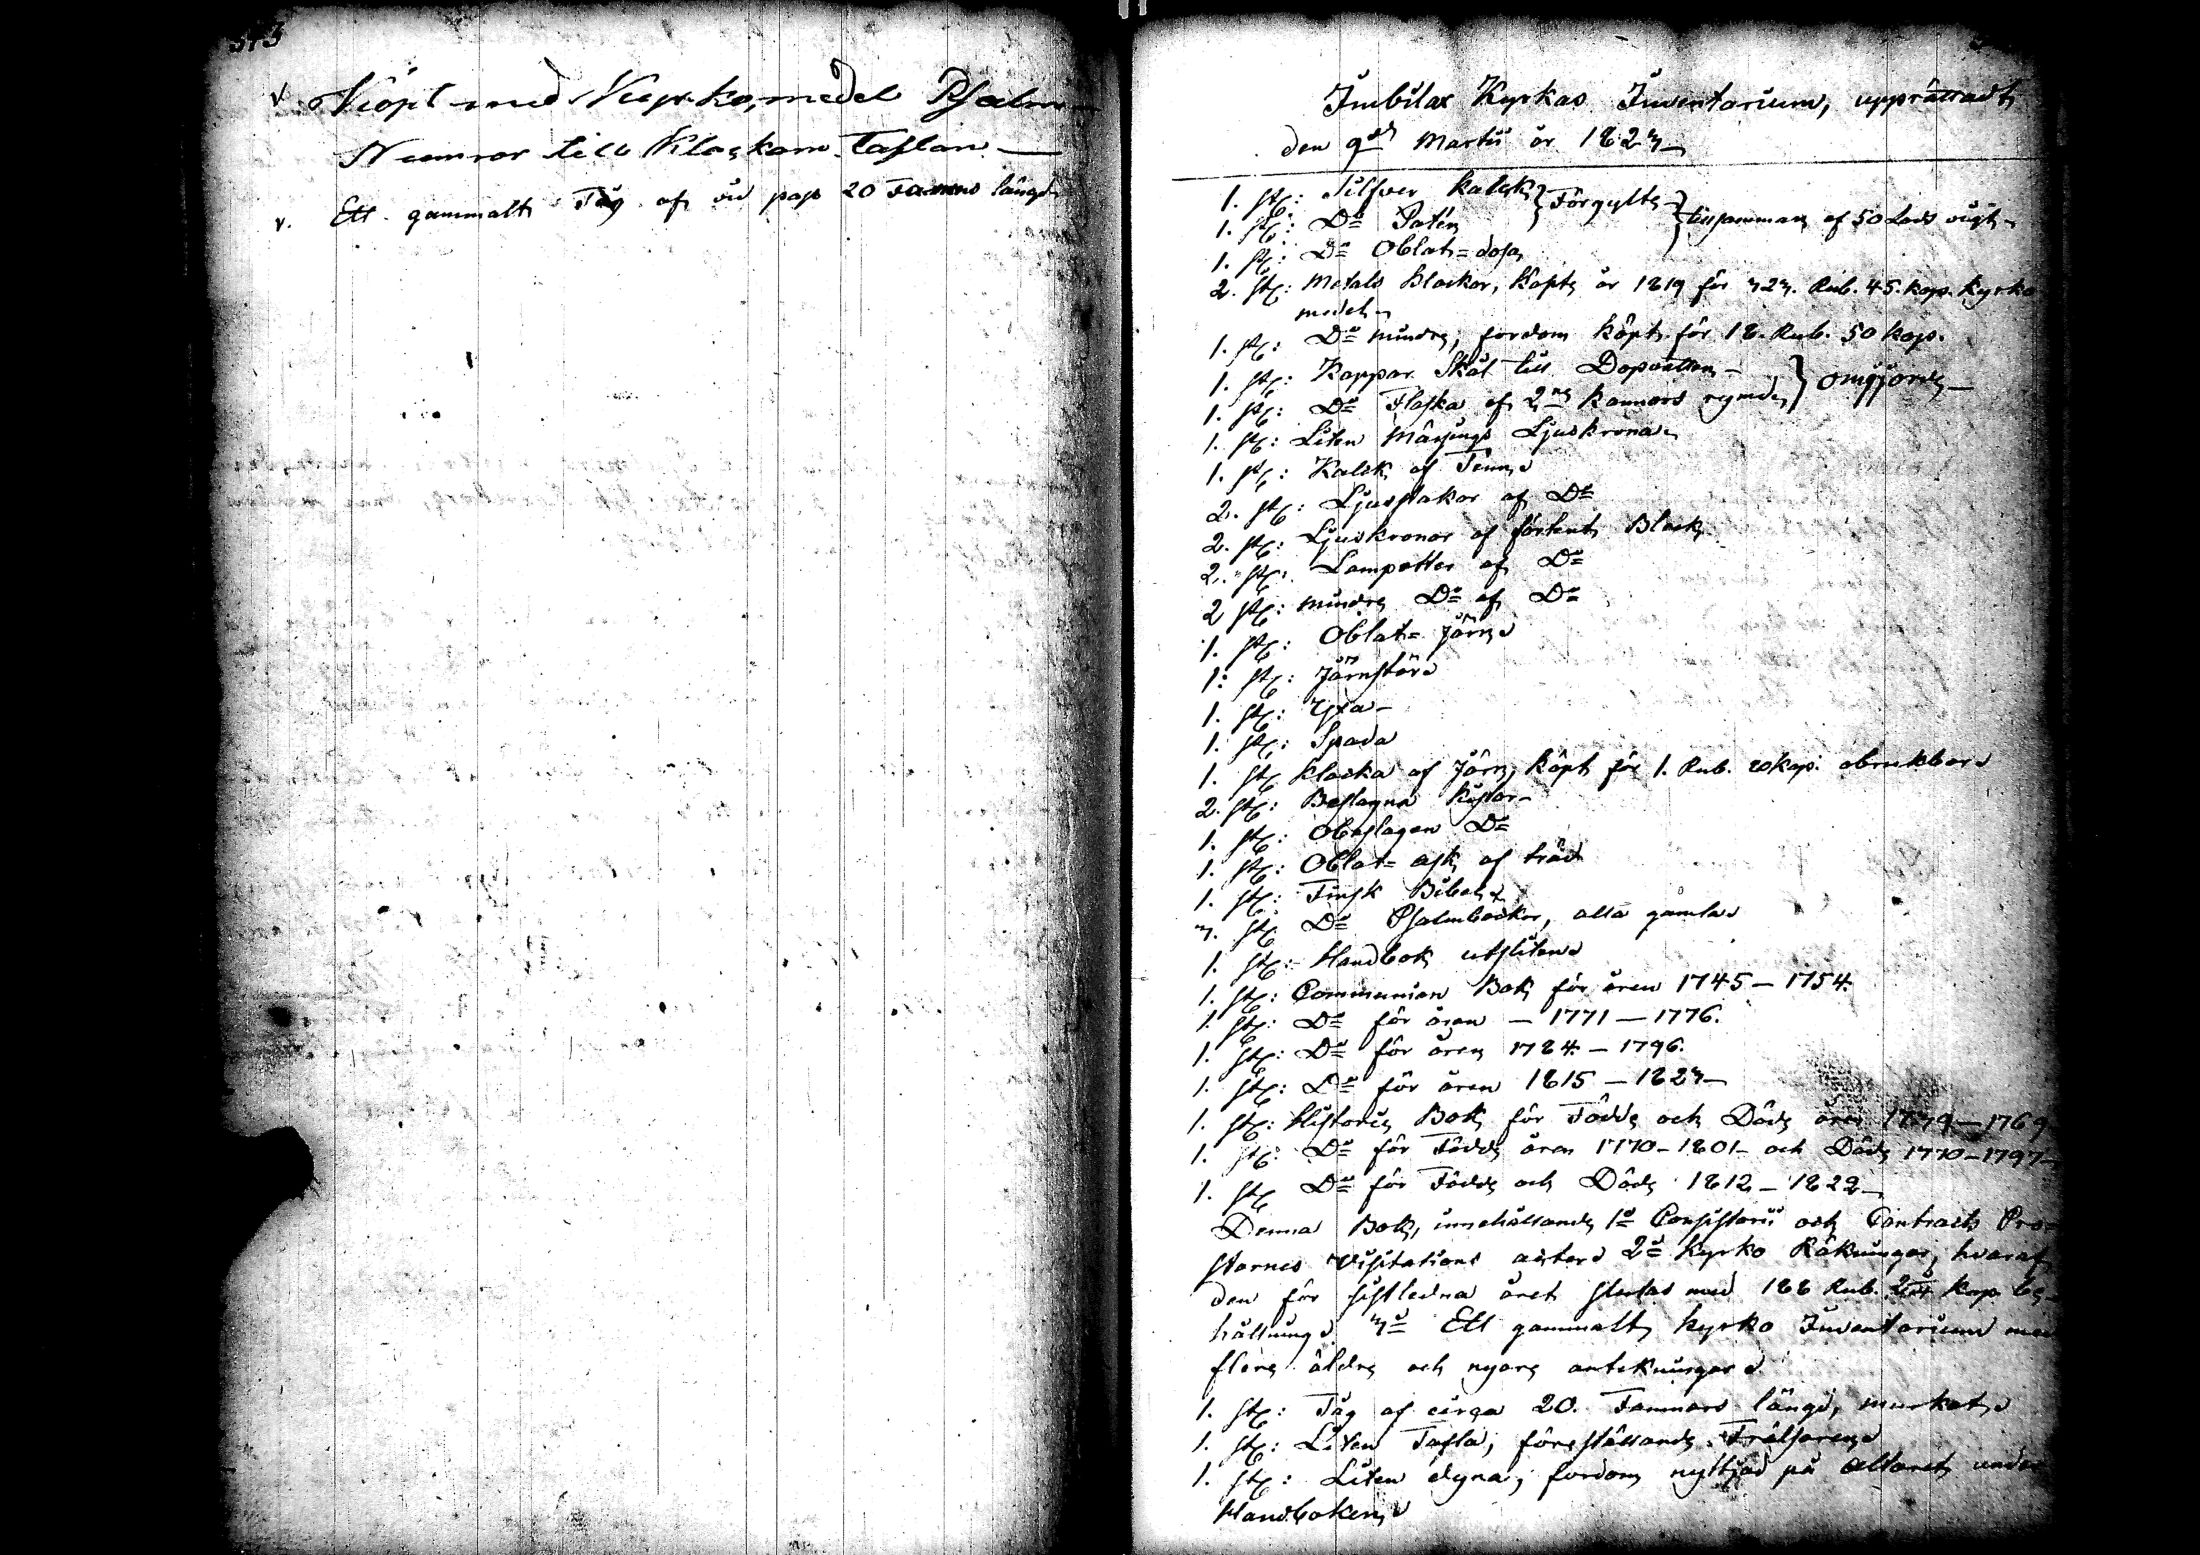 343
v. Kiöpt med Kyrko medel Psalm
Numror till Klockare Taflan —
v. Ett gammalt Tåg af vid pass 20 Famns längd
Imbilax Kyrkas Inventarium, upprättadt
den 9de Martii år 1823
1. st: Silfver kalk } Förgylte } tillsammans af 50 Lods vigt
1. st: Do Patén
1. st: Do Oblat=dosa
2. st: Metals Klockor, köpte år 1819 för 323. Rub. 45. kop. Kyrko
medel
1. st: Do mindre, fordom köpt för 18. Rub. 50 kop.
1. st: Koppar Skål till Dopvatten } omgjorde
1. st: Do Flaska af 2ne kannors rymd
1. st: Liten Mässings Ljuskrona
1. st: Kalk af Tenn
2. st: Ljusstakar af Do
2. st: Ljuskronor af förtent Bleck
2. st: Lampetter af Do
2 st: mindre Do af Do
1. st: Oblat= Järn
1. st: Järnstör
1. st: Yxa
1. st: Spada
1. st klocka af Järn, köpt för 1. Rub. 20 kop. obrukbar
2. st: Beslagna kistor
1. st: Obeslagen Do
1. st: Oblat= ask af träd
1. st: Finsk Bibel
3. st Do Psalmböcker, alla gamla
1. st: Handbok utsliten
1. st: Communion Bok för åren 1745 — 1754.
1. st: Do för åren — 1771 — 1776.
1. st: Do för åren 1784 — 1796.
1. st: Do för åren 1815 — 1823
1. st: Historie Bok för Födde och Döde åren 1739 — 1769
1. st: Do för Födde åren 1770 — 1801 — och Döde 1770 — 1797
1. st Do för Födde och Döde 1812 — 1822
Denna Bok, innehållande 1o Consistorii och Contracts Pro=
starnes Visitations acter 2o Kyrko Räkningar, hvaraf
den för sistledna året slutas med 188 Rub. kop be=
hållning 3o Ett gammalt kyrko Inventarium med
flere äldre och nyare antekningar
1. st: Tåg af circa 20. Famnars längd, murket
1. st: Liten Tafla, föreställande Frälsaren
1. st: Liten dyna, fordom nyttjad på Altaret under
Handboken